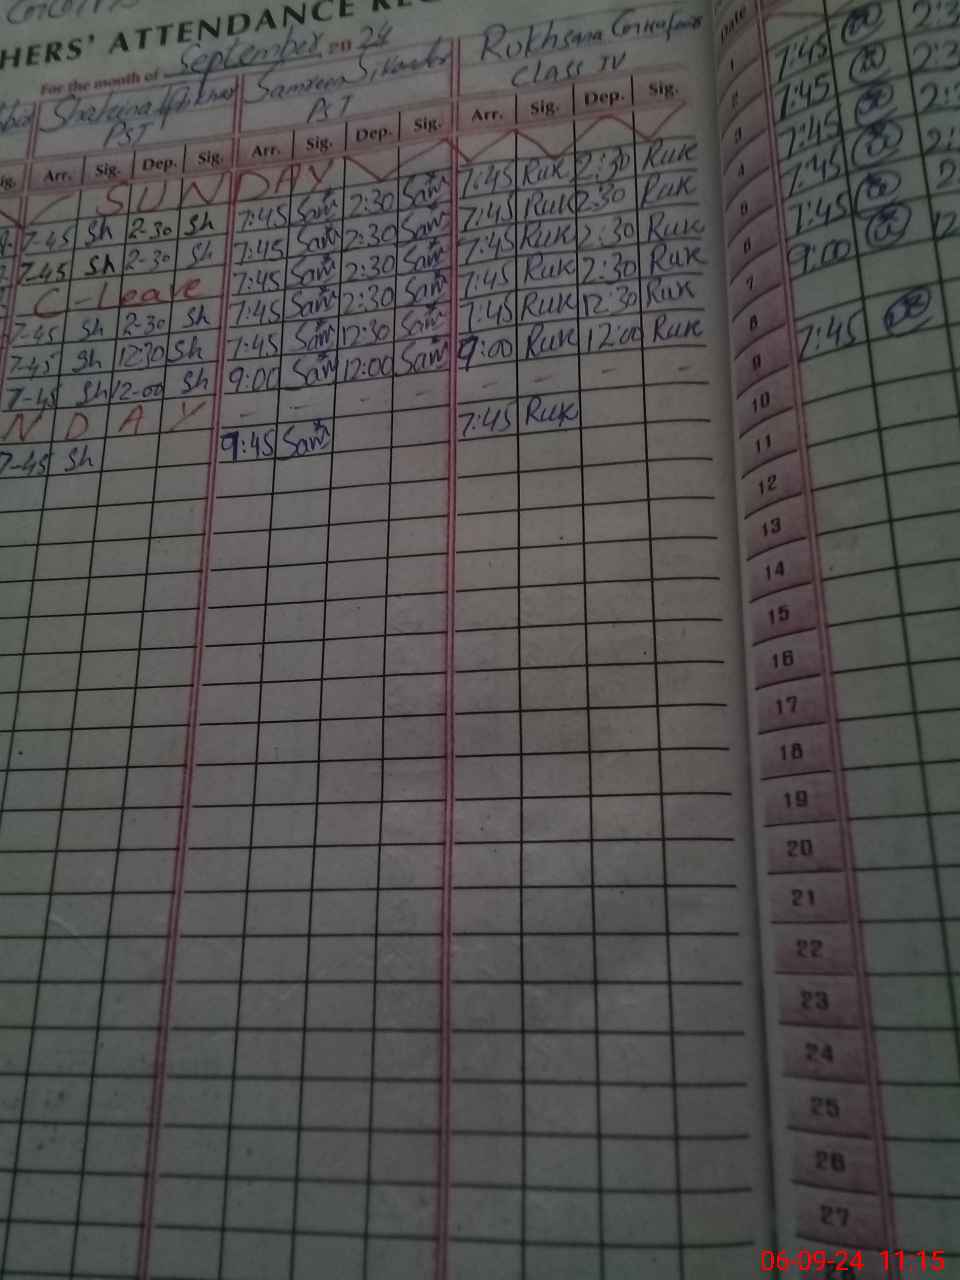 HERS' ATTENDANCE RE
For the month of September 2024
Rukhsana
PST
PST
CLASS IV
Date
Arr. Sig. Dep. Sig. Arr. Sig. Dep. Sig. Arr. Sig. Dep. Sig.
S U N D A Y
7-45 Sh 2-30 Sh 7:45 Sam 2:30 Sam 7:45 Ruk 2:30 Ruk
7-45 Sh 2-30 Sh 7:45 Sam 2:30 Sam 7:45 Ruk 2:30 Ruk
C-Leave 7:45 Sam 2:30 Sam 7:45 Ruk 2:30 Ruk
7-45 Sh 2-30 Sh 7:45 Sam 2:30 Sam 7:45 Ruk 2:30 Ruk
7-45 Sh 12:30 Sh 7:45 Sam 12:30 Sam 7:45 Ruk 12:30 Ruk
7-45 Sh 12-00 Sh 9:00 Sam 12:00 Sam 9:00 Ruk 12:00 Ruk
N D A Y - - - - - - - -
7-45 Sh 9:45 Sam 7:45 Ruk
1 7:45
2 7:45
3 7:45
4 7:45
5 7:45
6 9:00
7
8 7:45
9
10
11
12
13
14
15
16
17
18
19
20
21
22
23
24
25
26
27
06-09-24 11:15